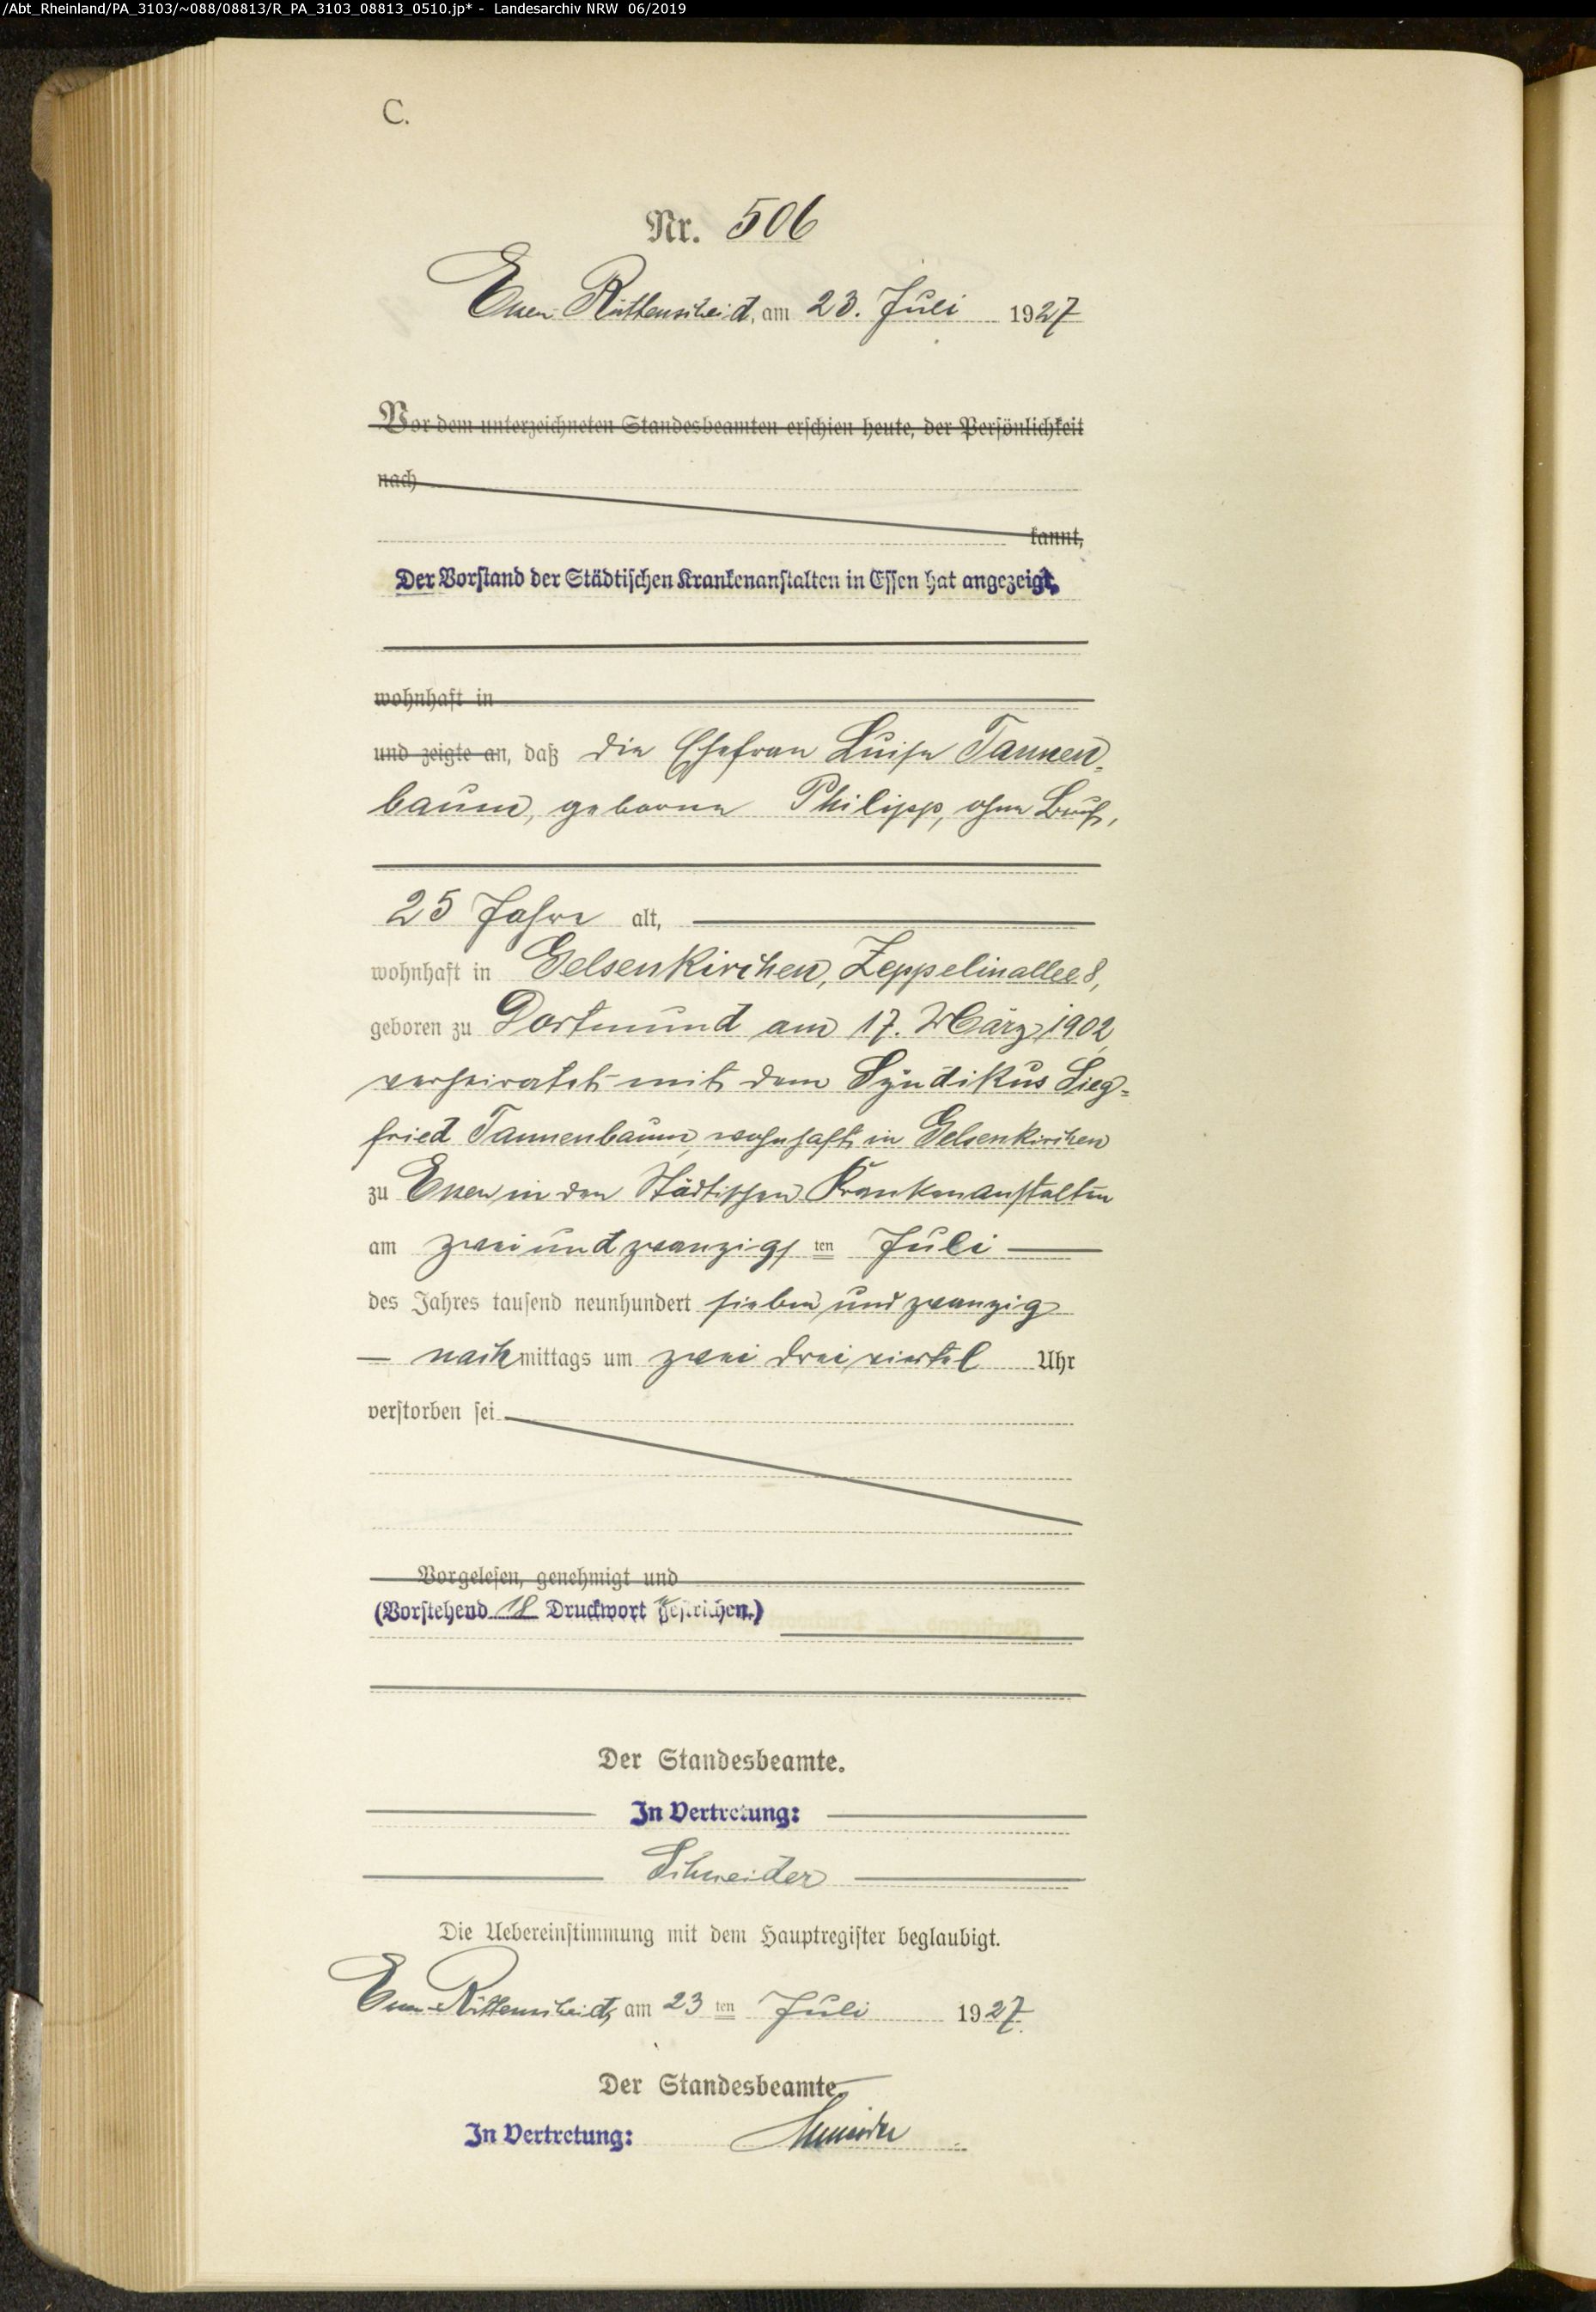 /Abt_Rheinland/PA_3103/~088/08813/R_PA_3103_08813_0510.jp* - Landesarchiv NRW 06/2019
C.
Nr. 506
Essen-Rüttenscheid, am 23. Juli 1927
Vor dem unterzeichneten Standesbeamten erschien heute, der Persönlichkeit
nach
kannt,
Der Vorstand der Städtischen Krankenanstalten in Essen hat angezeigt,
wohnhaft in
und zeigte an, daß die Ehefrau Luise Tannen-
baum, geborne Philipp, ohne Beruf,
25 Jahre alt,
wohnhaft in Gelsenkirchen, Zeppelinallee 8,
geboren zu Dortmund am 17. März 1902,
verheiratet mit dem Syndikus Sieg-
fried Tannenbaum, wohnhaft in Gelsenkirchen
zu Essen in den Städtischen Krankenanstalten
am zweiundzwanzigsten Juli
des Jahres tausend neunhundert sieben und zwanzig
nachmittags um zwei dreiviertel Uhr
verstorben sei
Vorgelesen, genehmigt und
(Vorstehend 18 Druckwort gestrichen.)
Der Standesbeamte.
In Vertretung:
Schneider
Die Uebereinstimmung mit dem Hauptregister beglaubigt.
Essen-Rüttenscheid, am 23ten Juli 1927.
Der Standesbeamte.
In Vertretung: Schneider